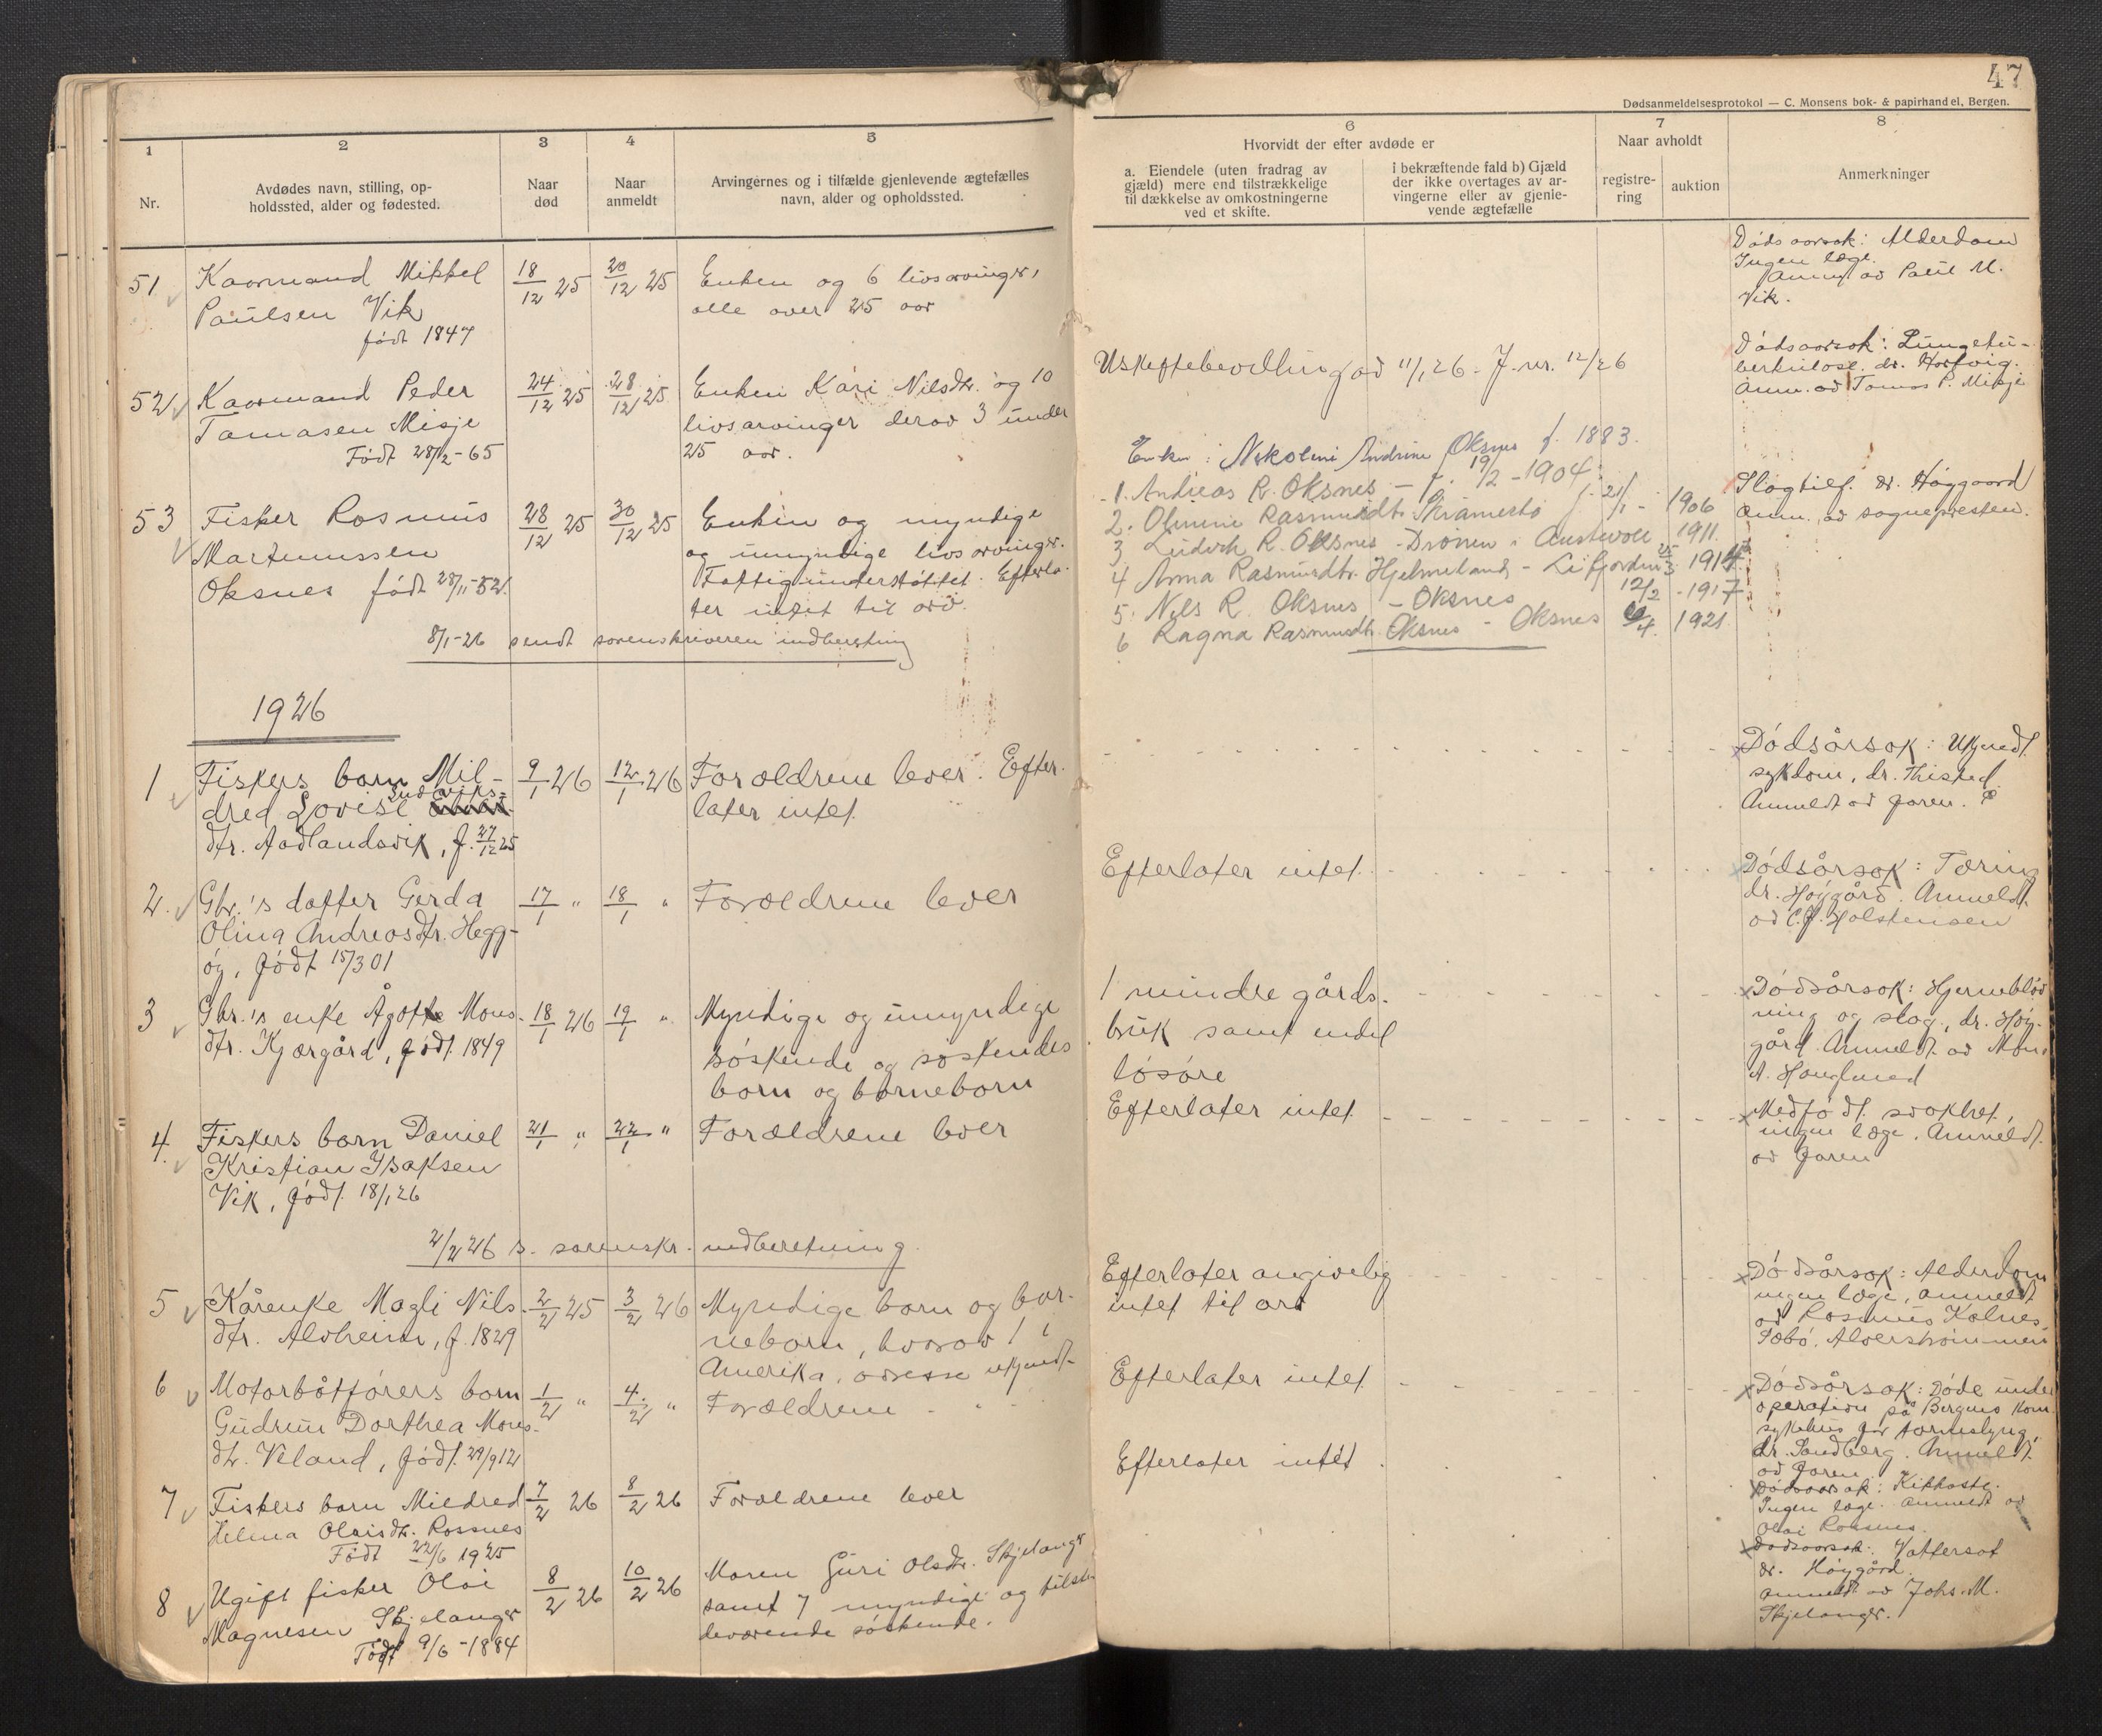 47
Dødsanmeldelsesprotokol — C. Monsens bok- & papirhandel, Bergen.
1
Nr.
2
Avdødes navn, stilling, op-
holdssted, alder og fødested.
3
Naar
død
4
Naar
anmeldt
5
Arvingernes og i tilfælde gjenlevende ægtefælles
navn, alder og opholdssted.
6
Hvorvidt der efter avdøde er
a. Eiendele (uten fradrag av
gjæld) mere end tilstrækkelige
til dækkelse av omkostningerne
ved et skifte.
i bekræftende fald b) Gjæld
der ikke overtages av ar-
vingerne eller av gjenle-
vende ægtefælle
7
Naar avholdt
registre-
ring
auktion
8
Anmerkninger
51
Kaarmand Mikkel
Paulsen Vik
født 1847
18/12 25
20/12 25
Enken og 6 livsarvinger,
alle over 25 aar
Dødsaarsak: Alderdom
Ingen læge.
Anm. av Paul M.
Vik.
52
Kaarmand Peder
Tomasen Misje
Født 28/2-65
24/12 25
28/12 25
Enken Kari Nilsdtr. og 10
livsarvinger derav 3 under
25 aar.
Uskiftebevilling av 11/1 26 - J.nr. 12/26
Dødsaarsak: Lungetu-
berkulose. dr.
Anm. av Tomas P. Misje
53
Fisker Rasmus
Martinussen
Oksnes født 28/11-52.
28/12 25
30/12 25
Enken og myndige
og umyndige livsarvinger.
Fattigunderstøttet. Efterla-
ter intet til arv.
Enke: Nikoline Andrine Oksnes f. 1883.
1. Andreas R. Oksnes - f. 19/2-1904
2. Olmine Rasmusdtr. Skramestø f. 21/1 - 1906
3 Ludvik R. Oksnes - Drønen i Austevoll 1911.
4 Anna Rasmusdtr. Hjelmeland - Lifjorden 25/3 1914
5. Nils R. Oksnes - Oksnes 12/2 - 1917
6 Ragna Rasmusdtr. Oksnes - Oksnes 6/4. 1921
Slagtilf. dr. Høygaard
Anm. av sognepresten.
8/1-26 sendt sorenskriveren indberetning
1926
1
Fiskers barn Mil-
dred Lovise Ludviks-
dtr. Aadlandsvik, f. 27/12 25
9/1 26
12/1 26
Forældrene lever. Efter-
later intet.
Dødsårsak: Ukjendt
sykdom, dr. Thisted.
Anmeldt av faren.
2.
Gbr.'s datter Gerda
Olina Andreasdtr. Hegg-
øy, født 15/3 01
17/1 "
18/1 "
Forældrene lever
Efterlater intet.
Dødsårsak: Tæring
dr. Høygård. Anmeldt
av C. J. Holstensen
3
Gbr.'s enke Ågotte Mons-
dtr. Kjærgård, født 1849
18/1 26
19/1 "
Myndige og umyndige
søskende og søskendes
barn og barnebarn
1 mindre gårds-
bruk samt endel
løsøre
Dødsårsak: Hjerneblød
ning og slag, dr. Høy-
gård. Anmeldt av Mons
A. Haugland
4.
Fiskers barn Daniel
Kristian Isaksen
Vik, født 18/1 26
21/1 "
22/1 "
Forældrene lever
Efterlater intet
Medfødt svakhet,
ingen læge. Anmeldt
av faren
2/2 26 s. sorenskr. indberetning
5
Kårenke Magli Nils-
dtr. Alvheim, f. 1829
2/2 25
3/2 26
Myndige barn og bar-
nebarn, hvorav 1 i
Amerika, adresse ukjendt
Efterlater angivelig
intet til arv
Dødsårsak: Alderdom
ingen læge, anmeldt
av Rasmus Kolnes
Søbø, Alverstrømmen
6
Motorbåtførers barn
Gudrun Dorthea Mons-
dtr. Veland, født 29/9 12
1/2 "
4/2 "
Forældrene - " -
Efterlater intet
Dødsårsak: Døde under
operation på Bergens kom.
sykehus for tarmslyng,
dr. Sandberg. Anmeldt
av faren
7
Fiskers barn Mildred
Helma Olaisdtr. Rossnes
Født 22/6 1925
7/2 26
8/2 26
Forældrene lever
Efterlater intet
Dødsaarsak: Kikhoste.
Ingen læge. Anmeldt av
Olai Rossnes.
8
Ugift fisker Olai
Magnesen Skjelanger
Født 9/6-1884
8/2 26
10/2 26
Moren Guri Olsdtr. Skjelanger
samt 7 myndige og tilste-
deværende søskende.
Dødsaarsak: Vattersot
dr. Høygård.
anmeldt av Johs. M.
Skjelanger.